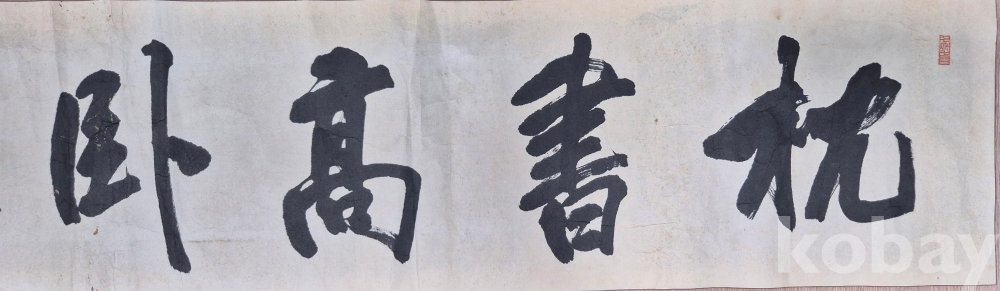 枕書高臥
kobay